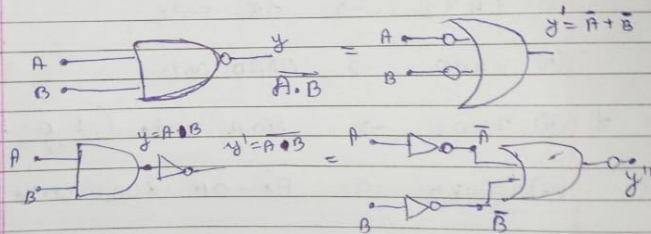 A B y \overline{A.B} = A B y' = \overline{A} + \overline{B}
A B y = A.B y' = \overline{A.B} = A \overline{A} B \overline{B} y''